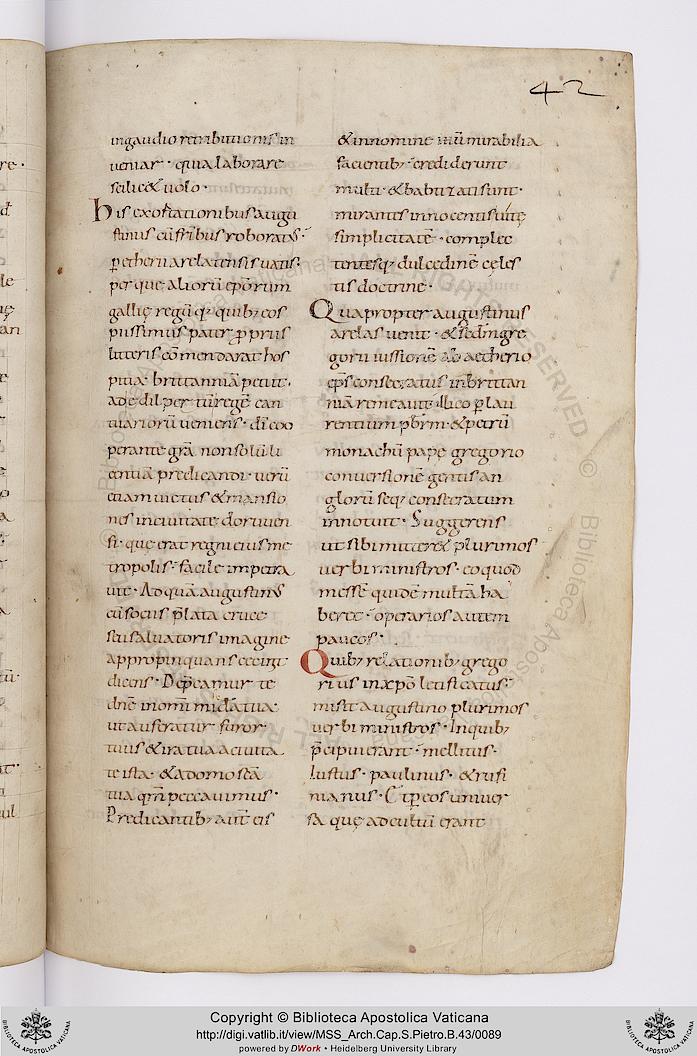 42
ingaudio retributionis in
ueniar · quia laborare
scilic& uolo ·
his exortationibus augu
stinus cū fr̄ibus roboratus ·
p̄ etherii arelatensis uatis ·
per que aliorū ep̄orum
gallię regū q; quib; eos
piissimus pater p̄ prius
litteris cōmendarat hos
pitia brittanniā petiit ·
cantuariorū ueniens · dn̄o coo
perante grā non solū li
centiā predicandi · uerū
etiam uictus & mansio
nes in ciuitate doruuer
si · que erat regni eius me
tropolis · facile impetra
uit · Ad quā augustinus
cū sociis p̄lata cruce
seu saluatoris imagine
appropinquans cecinit
dicens · Dep̄camur te
dn̄e in om̄i mīa tua ·
ut auferatur furor
tuus & ira tua a ciuita
te ista · & a domo sc̄a
tua qm̄ peccauimus ·
Predicantib; aut̄ eis
& in nomine ihu mirabilia
facientib; crediderunt
multi · & babtizati sunt ·
mirantes innocentis uitę
simplicitatē · complec
tentesq; dulcedinē cęles
tis doctrine ·
Qua propter augustinus
arelas uenit · & secd̄m gre
gorii iussionē ab aetherio
ep̄s consecratus in brittan
niā remeauit · Ilico p̄ lau
rentium p̄brm · & petrū
monachū papę gregorio
conuersionē gentis an
glorū seq; consecratum
innotuit · Suggerens
ut sibi mitter& plurimos
uerbi ministros · eo quod
messē quidē multā ha
beret · operarios autem
paucos ·
Quib; relationib; grego
rius in xp̄o letificatus
misit augustino plurimos
uerbi ministros · In quib;
p̄cipui erant · mellitus ·
Iustus · paulinus · & rufi
nianus · Et p̄ eos uniuer
sa quę ad cultū erant
Copyright © Biblioteca Apostolica Vaticana
http://digi.vatlib.it/view/MSS_Arch.Cap.S.Pietro.B.43/0089
powered by DWork • Heidelberg University Library